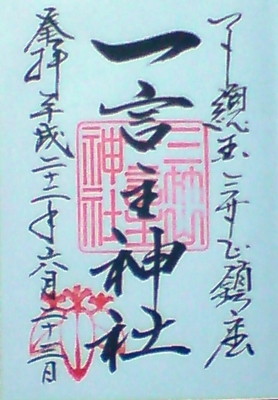 下總国三竹山鎮座
一言主神社
奉拝 平成二十二年六月二十三日
三竹山
一言主
神社